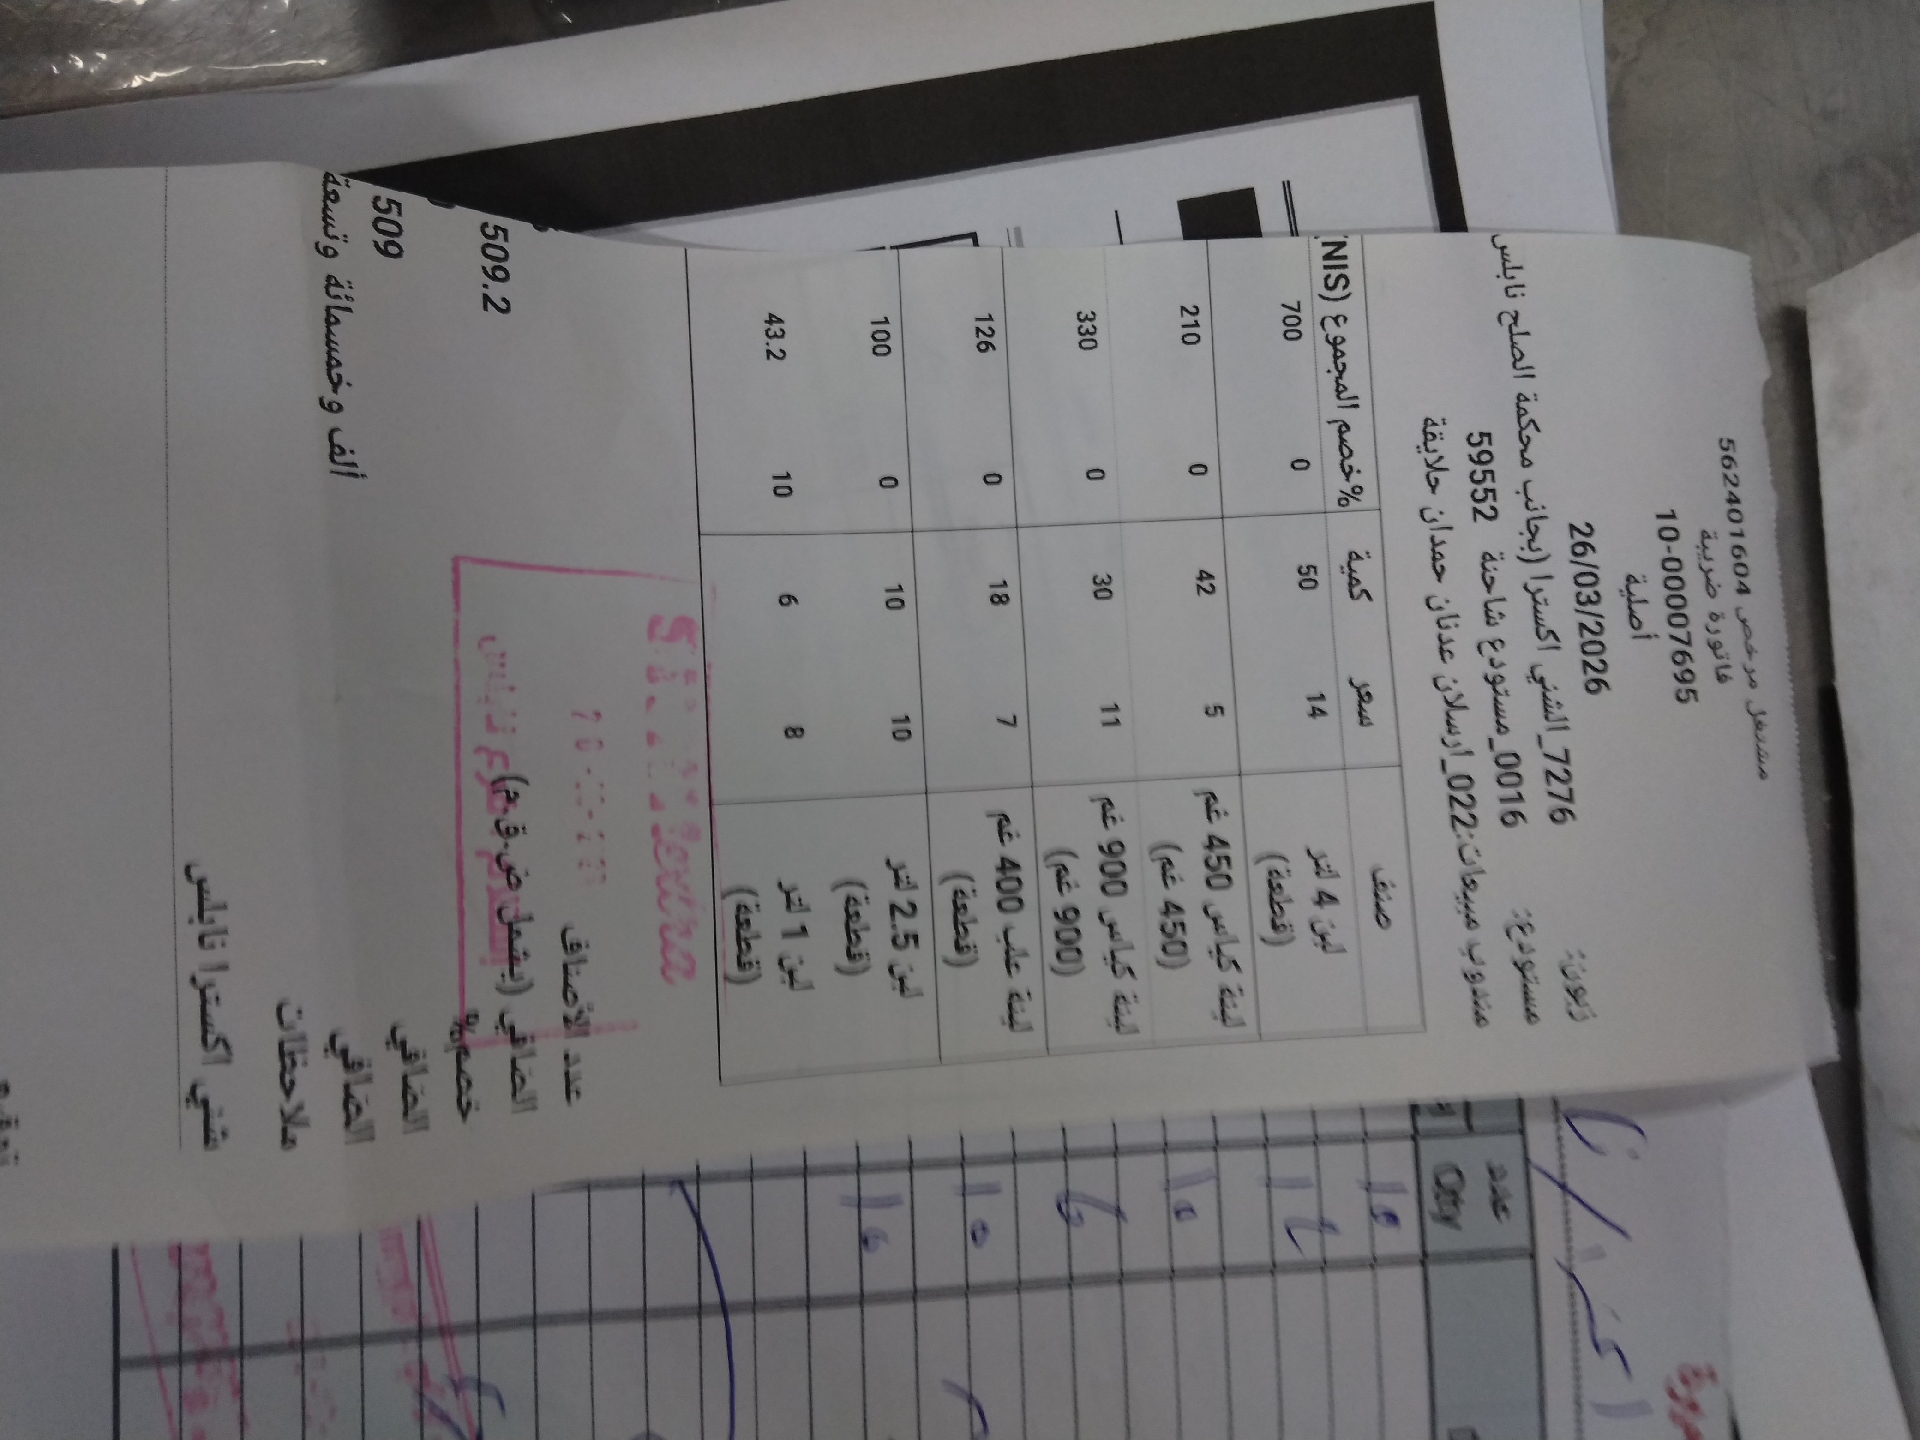 مشتغل مرخص 562401604
فاتورة ضريبة
10-00007695
أصلية
26/03/2026
زبون: 7276_الشني اكسترا (بجانب محكمة الصلح نابلس
مستودع: 0016_مستودع شاحنة 59552
مندوب مبيعات:022_ارسلان عدنان حمدان حلايقة
صنف سعر كمية %خصم المجموع (NIS
لبن 4 لتر (قطعة) 14 50 0 700
لبنة كياس 450 غم (450 غم) 5 42 0 210
لبنة كياس 900 غم (900 غم) 11 30 0 330
لبنة علب 400 غم (قطعة) 7 18 0 126
لبن 2.5 لتر (قطعة) 10 10 0 100
لبن 1 لتر (قطعة) 8 6 10 43.2
عدد الأصناف
الصافي (يشمل ض.ق.م) 509.2
خصم%
الصافي 509
الصافي ألف وخمسمائة وتسعة
ملاحظات
شني اكسترا نابلس
عدد
Qty